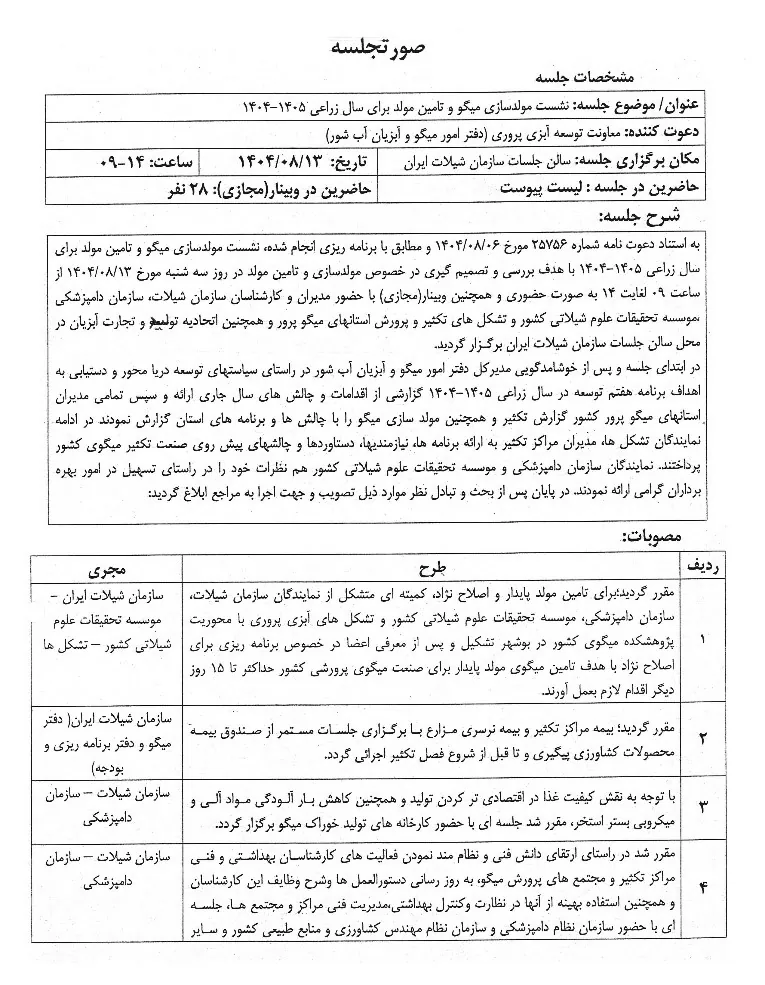 صورتجلسه
مشخصات جلسه
عنوان/ موضوع جلسه: نشست مولدسازی میگو و تامین مولد برای سال زراعی ۱۴۰۵-۱۴۰۴
دعوت کننده: معاونت توسعه آبزی پروری (دفتر امور میگو و آبزیان آب شور)
مکان برگزاری جلسه: سالن جلسات سازمان شیلات ایران تاریخ: ۱۴۰۴/۰۸/۱۳ ساعت: ۱۴-۰۹
حاضرین در جلسه : لیست پیوست حاضرین در وبینار(مجازی): ۲۸ نفر
شرح جلسه:
به استناد دعوت نامه شماره ۲۵۷۵۶ مورخ ۱۴۰۴/۰۸/۰۶ و مطابق با برنامه ریزی انجام شده، نشست مولدسازی میگو و تامین مولد برای
سال زراعی ۱۴۰۵-۱۴۰۴ با هدف بررسی و تصمیم گیری در خصوص مولدسازی و تامین مولد در روز سه شنبه مورخ ۱۴۰۴/۰۸/۱۳ از
ساعت ۰۹ لغایت ۱۴ به صورت حضوری و همچنین وبینار(مجازی) با حضور مدیران و کارشناسان سازمان شیلات، سازمان دامپزشکی
،موسسه تحقیقات علوم شیلاتی کشور و تشکل های تکثیر و پرورش استانهای میگو پرور و همچنین اتحادیه تولید و تجارت آبزیان در
محل سالن جلسات سازمان شیلات ایران برگزار گردید.
در ابتدای جلسه و پس از خوشامدگویی مدیرکل دفتر امور میگو و آبزیان آب شور در راستای سیاستهای توسعه دریا محور و دستیابی به
اهداف برنامه هفتم توسعه در سال زراعی ۱۴۰۵-۱۴۰۴ گزارشی از اقدامات و چالش های سال جاری ارائه و سپس تمامی مدیران
استانهای میگو پرور کشور گزارش تکثیر و همچنین مولد سازی میگو را با چالش ها و برنامه های استان گزارش نمودند در ادامه
نمایندگان تشکل ها، مدیران مراکز تکثیر به ارائه برنامه ها، نیازمندیها، دستاوردها و چالشهای پیش روی صنعت تکثیر میگوی کشور
پرداختند. نمایندگان سازمان دامپزشکی و موسسه تحقیقات علوم شیلاتی کشور هم نظرات خود را در راستای تسهیل در امور بهره
برداران گرامی ارائه نمودند. در پایان پس از بحث و تبادل نظر موارد ذیل تصویب و جهت اجرا به مراجع ابلاغ گردید:
مصوبات:
ردیف طرح مجری
۱
مقرر گردید؛برای تامین مولد پایدار و اصلاح نژاد، کمیته ای متشکل از نمایندگان سازمان شیلات،
سازمان دامپزشکی، موسسه تحقیقات علوم شیلاتی کشور و تشکل های آبزی پروری با محوریت
پژوهشکده میگوی کشور در بوشهر تشکیل و پس از معرفی اعضا در خصوص برنامه ریزی برای
اصلاح نژاد با هدف تامین میگوی مولد پایدار برای صنعت میگوی پرورشی کشور حداکثر تا ۱۵ روز
دیگر اقدام لازم بعمل آورند.
سازمان شیلات ایران –
موسسه تحقیقات علوم
شیلاتی کشور – تشکل ها
۲
مقرر گردید؛ بیمه مراکز تکثیر و بیمه نرسری مزارع با برگزاری جلسات مستمر از صندوق بیمه
محصولات کشاورزی پیگیری و تا قبل از شروع فصل تکثیر اجرائی گردد.
سازمان شیلات ایران( دفتر
میگو و دفتر برنامه ریزی و
بودجه)
۳
با توجه به نقش کیفیت غذا در اقتصادی تر کردن تولید و همچنین کاهش بار آلودگی مواد آلی و
میکروبی بستر استخر، مقرر شد جلسه ای با حضور کارخانه های تولید خوراک میگو برگزار گردد.
سازمان شیلات – سازمان
دامپزشکی
۴
مقرر شد در راستای ارتقای دانش فنی و نظام مند نمودن فعالیت های کارشناسان بهداشتی و فنی
مراکز تکثیر و مجتمع های پرورش میگو، به روز رسانی دستورالعمل ها وشرح وظایف این کارشناسان
و همچنین استفاده بهینه از آنها در نظارت وکنترل بهداشتی،مدیریت فنی مراکز و مجتمع ها، جلسه
ای با حضور سازمان نظام دامپزشکی و سازمان نظام مهندس کشاورزی و منابع طبیعی کشور و سایر
سازمان شیلات – سازمان
دامپزشکی